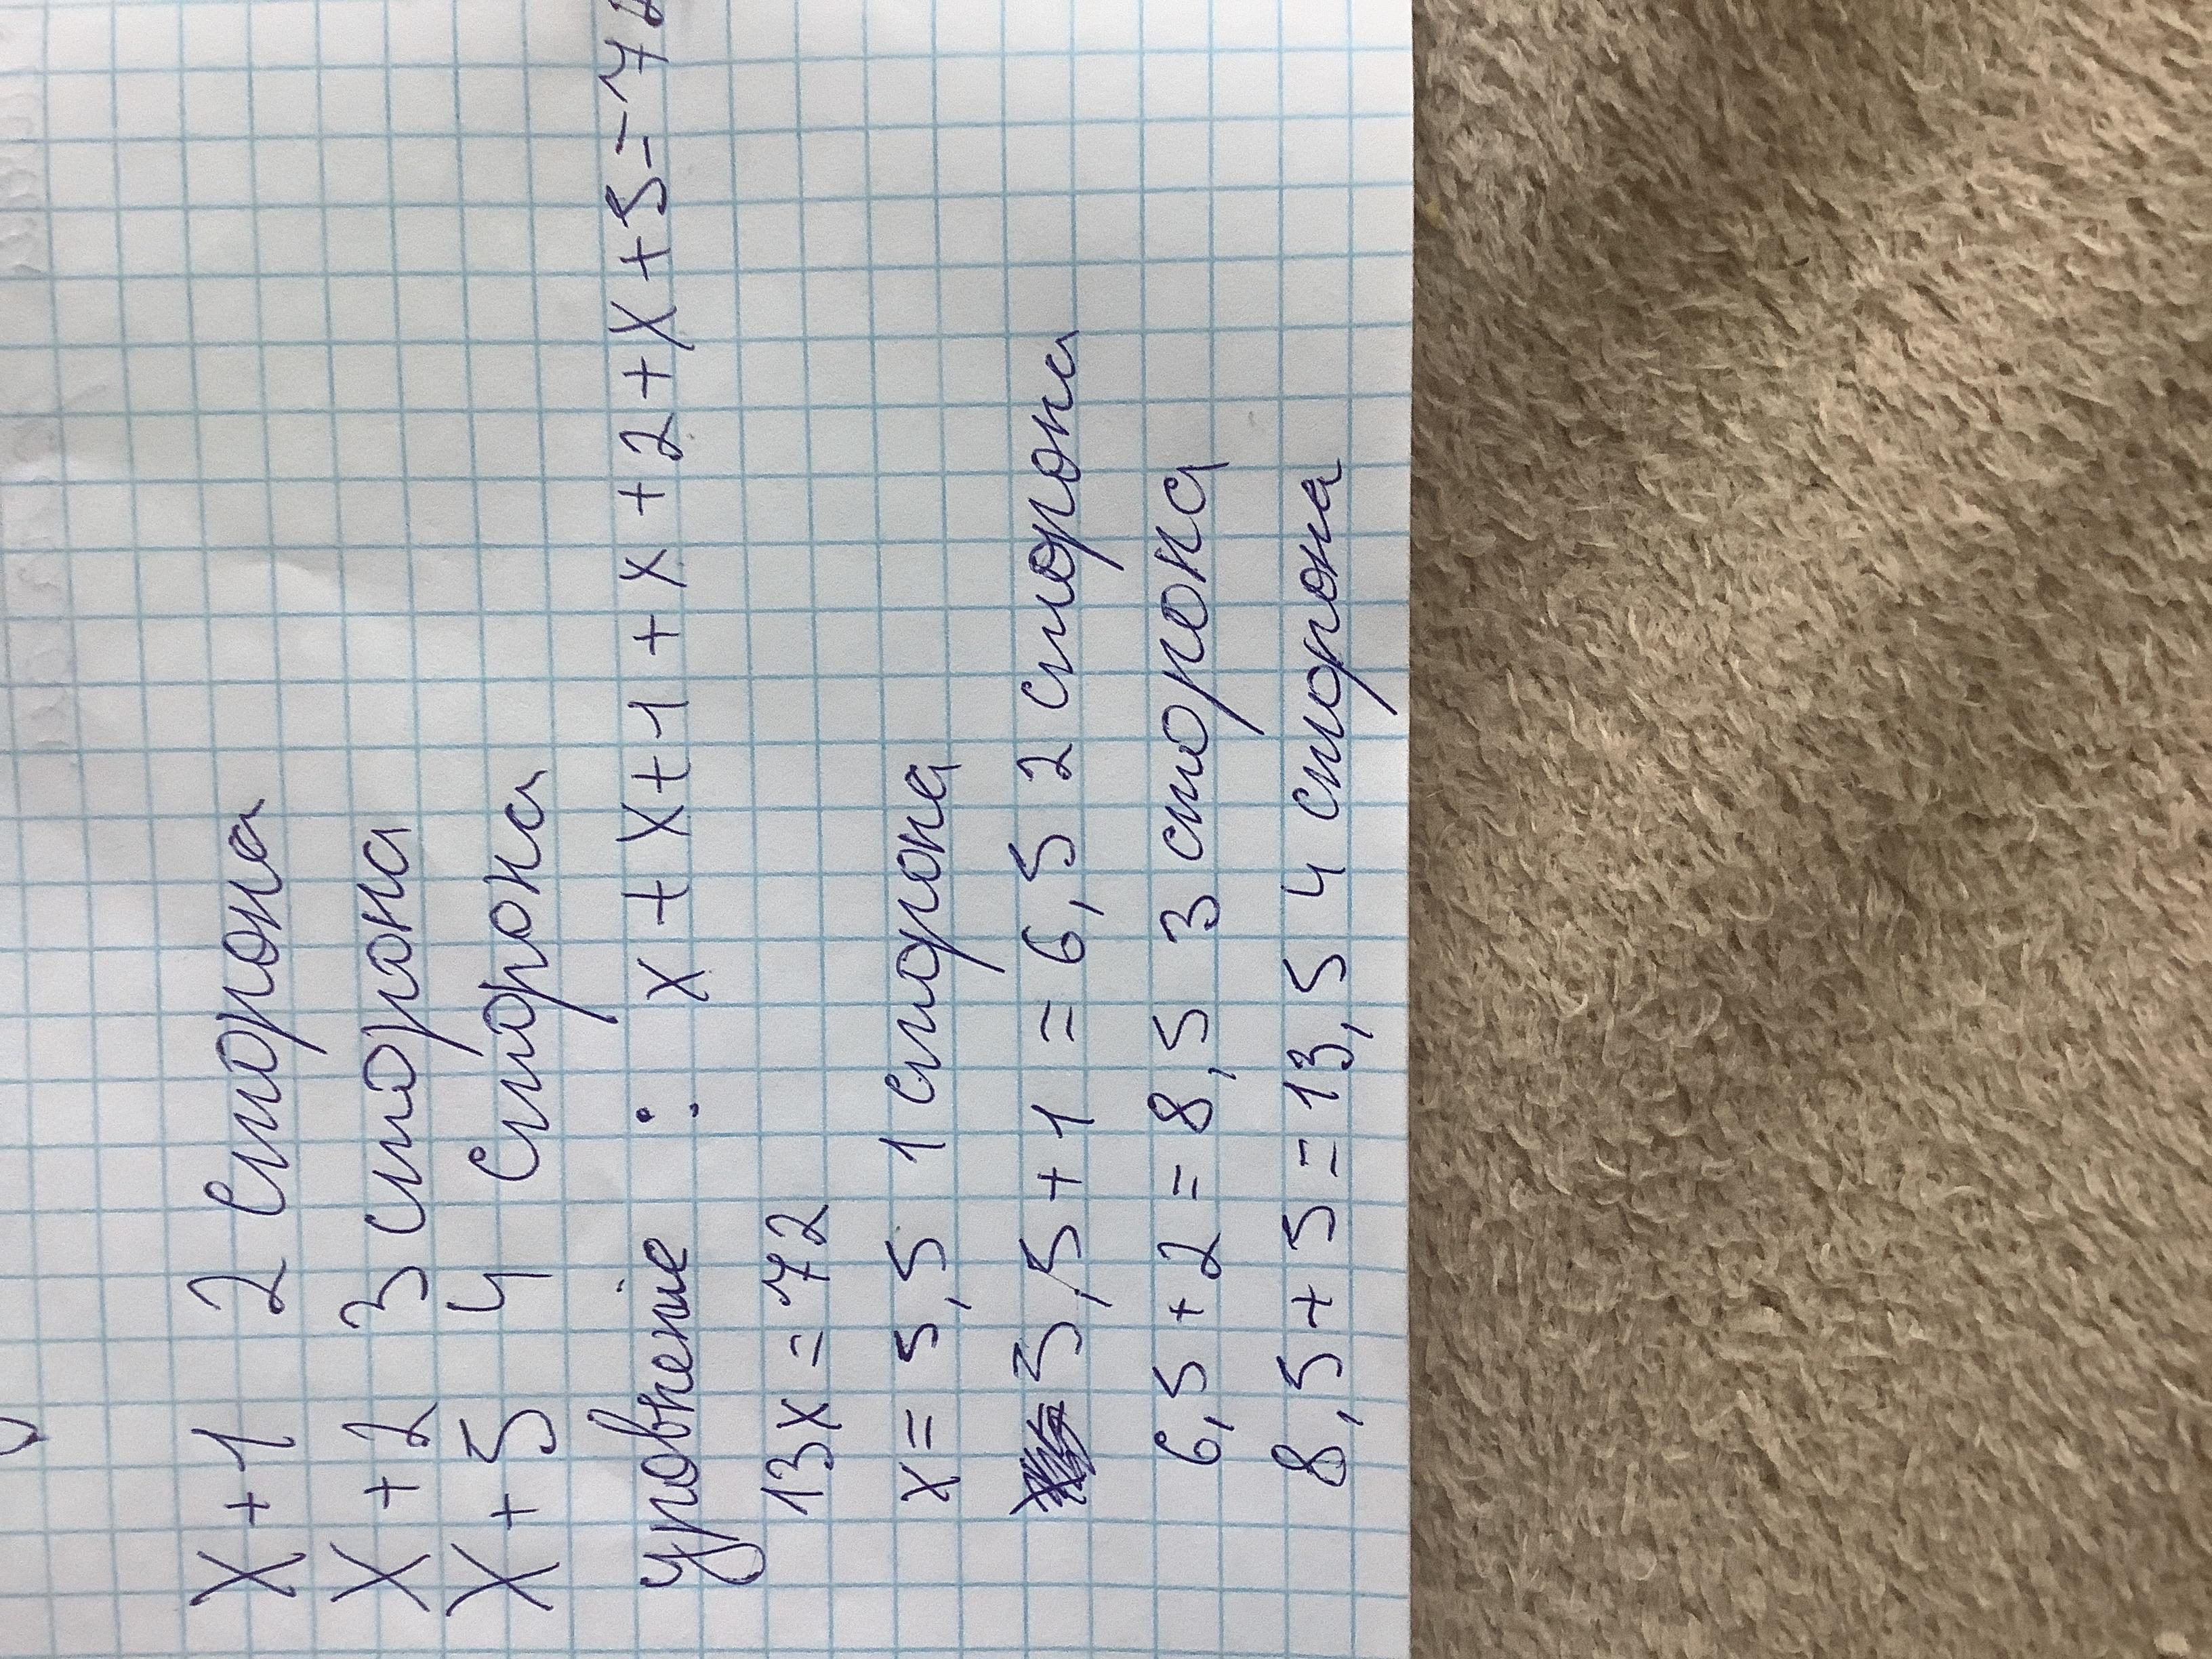 х+1 2 сторона
х+2 3 сторона
х+5 4 сторона
уровнение: х+х+1+х+2+х+5=72
13х=72
х=5,5 1 сторона
5,5+1=6,5 2 сторона
6,5+2=8,5 3 сторона
8,5+5=13,5 4 сторона